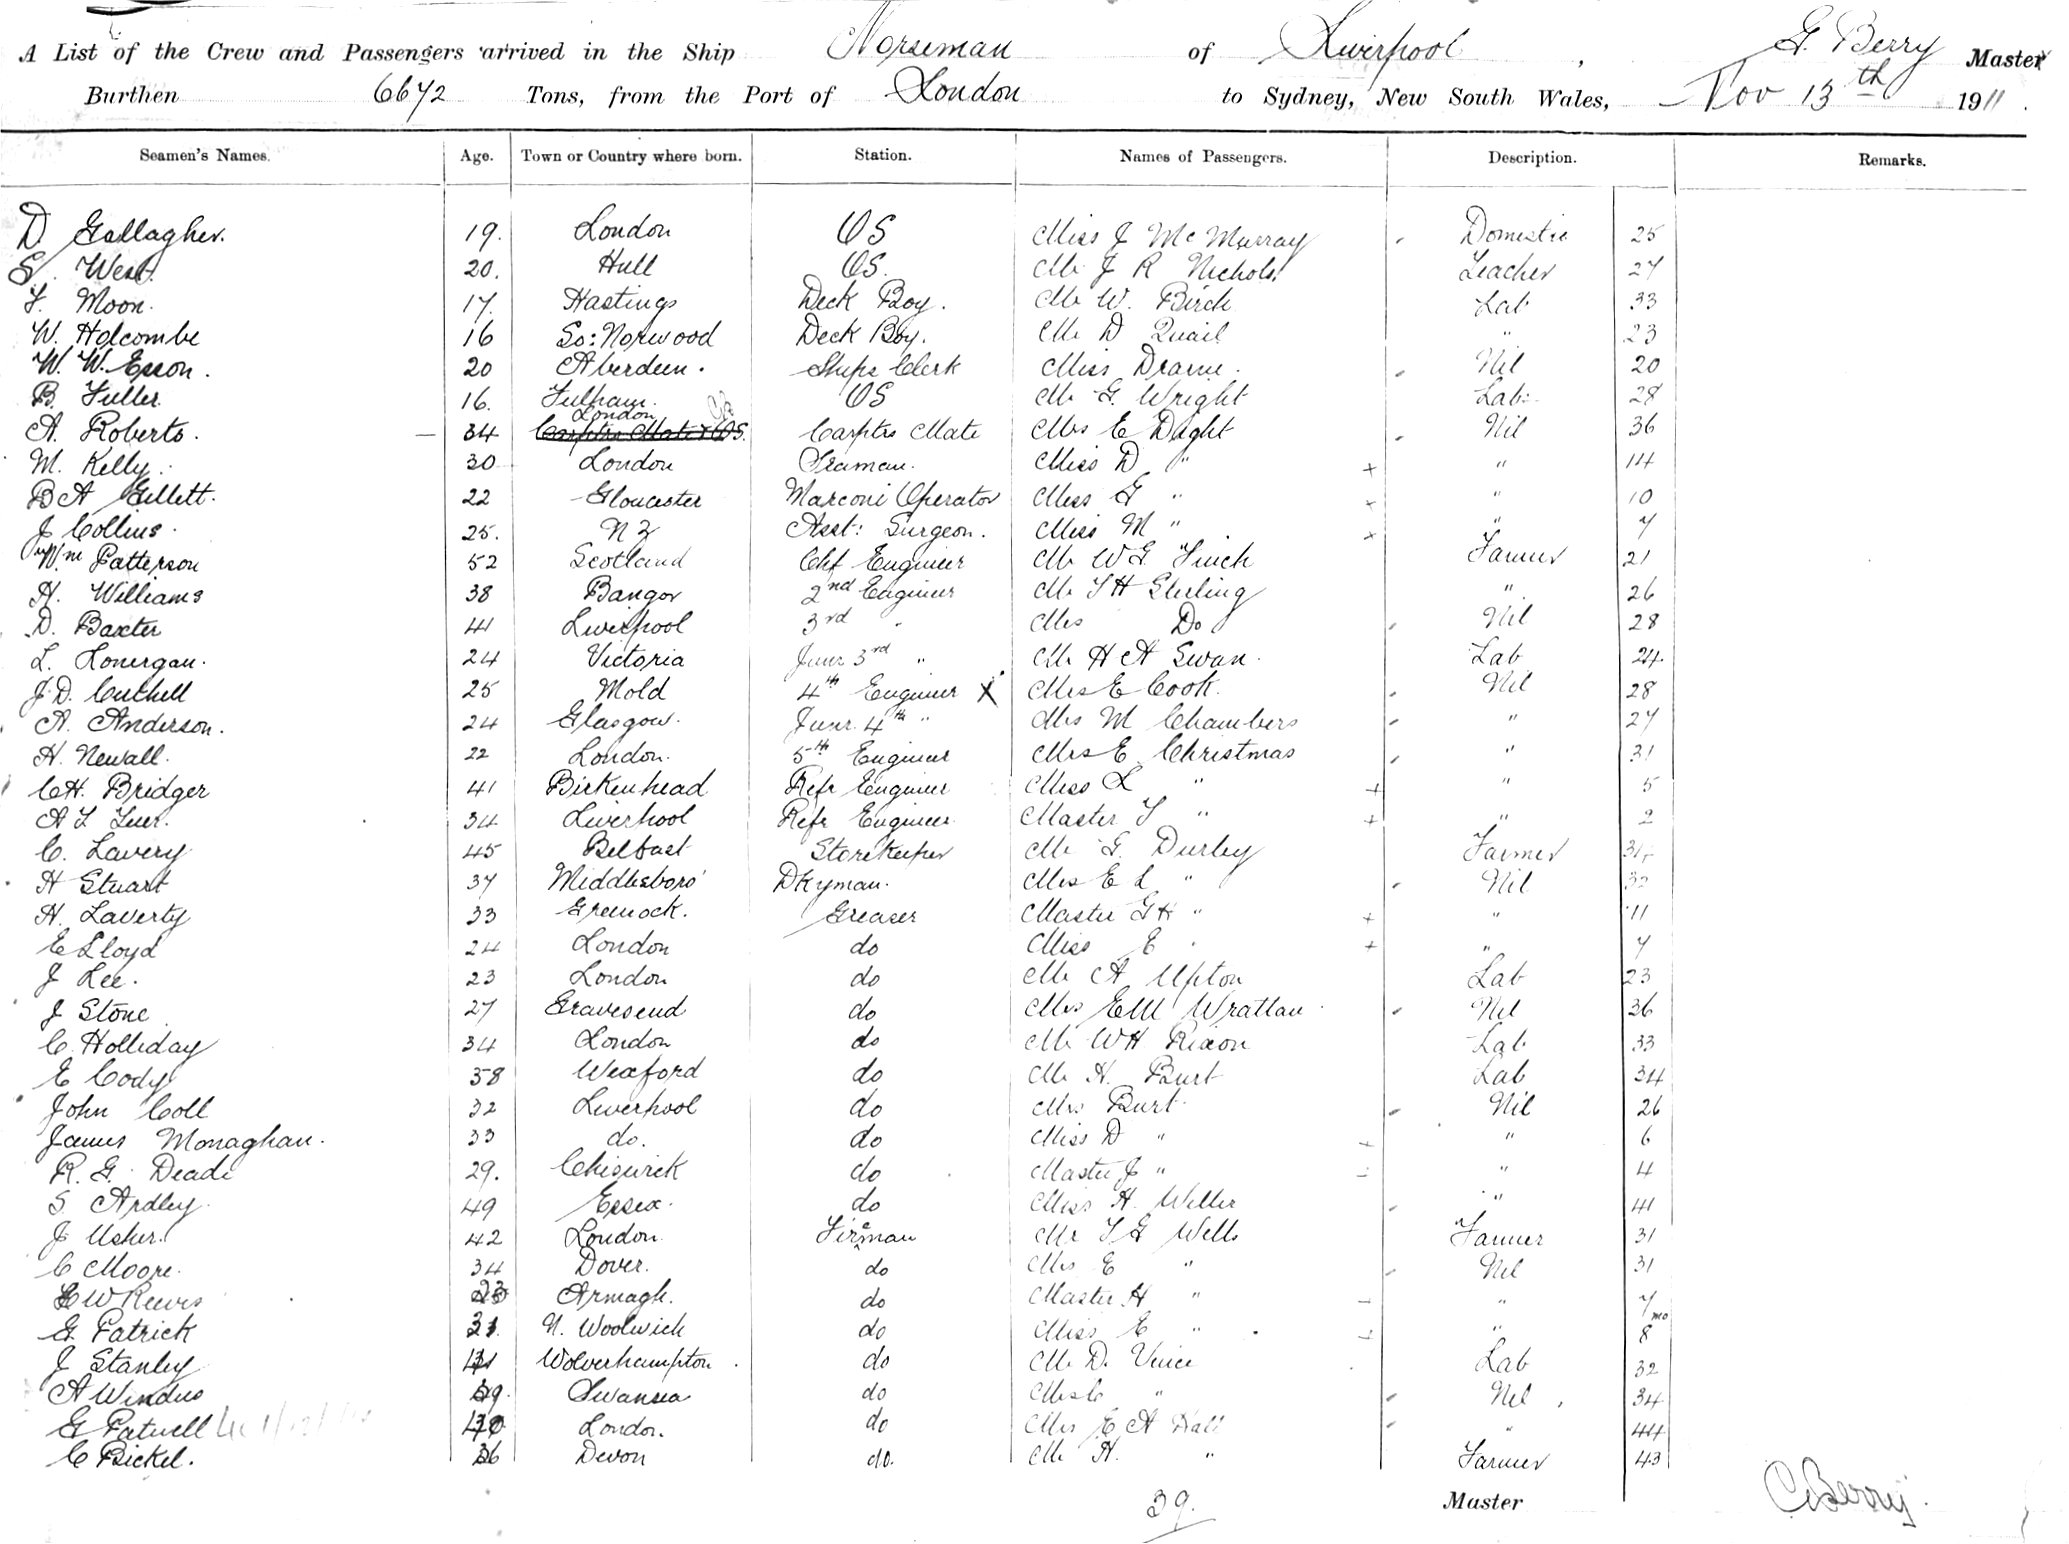 A List of the Crew and Passengers arrived in the Ship Norseman of Liverpool, G. Berry Master
Burthen 6672 Tons, from the Port of London to Sydney, New South Wales, Nov 13th 1911.
Seamen's Names. Age. Town or Country where born. Station. Names of Passengers. Description. Remarks.
D. Gallagher. 19. London OS Miss J McMurray Domestic 25
S. West. 20. Hull OS. Mr J R Nichols Teacher 27
F. Moon. 17. Hastings Deck Boy. Mr W. Birch Lab 33
W. Holcombe 16 So: Norwood Deck Boy. Mr D Quail " 23
W. W. Esson. 20 Aberdeen. Ships Clerk Miss Nil 20
B. Fuller 16. Fulham. OS Mr G. Wright Lab: 28
London
A. Roberts. 34 Carptrs Mate Mrs E Dight Nil 36
M. Kelly. 30 London Seaman. Miss D " " 14
B A Gillett. 22 Gloucester Marconi Operator Miss G " " 10
J Collins. 25. N Z Asst: Surgeon. Miss M " " 7
Wm Patterson 52 Scotland Chf Engineer Mr W G Finch Farmer 21
H. Williams 38 Bangor 2nd Engineer Mr T H Sterling " 26
D. Baxter 41 Liverpool 3rd " Mrs Do Nil 28
L. Lonergan. 24 Victoria Junr 3rd " Mr H A Swan. Lab 24
J. D. Cuthell 25 Mold 4th Engineer X Mrs E Cook. Nil 28
A. Anderson. 24 Glasgow. Junr. 4th " Mrs M Chambers " 27
H. Newall. 22 London. 5th Engineer Mrs E Christmas " 31
C H. Bridger 41 Birkenhead Refr Engineer Miss L " " 5
A L 34 Liverpool Refr Engineer Master T " " 2
C. Lavery 45 Belfast Storekeeper Mr G. Durley Farmer
H Stuart 37 Middlesboro' Dkyman. Mrs E L " Nil
H. Laverty 33 Greenock. Greaser Master G H " " 11
E Lloyd 24 London do Miss E " " 7
J Lee. 23 London do Mr A Upton Lab 23
J Stone 27 Gravesend do Mrs E M Wrattan Nil 36
C. Holliday 34 London do Mr W H Rixon Lab 33
E Cody 38 Wexford do Mr H. Burt Lab 34
John Coll 32 Liverpool do Mrs Burt Nil 26
James Monaghan. 33 do. do Miss D " " 6
R. G. Deade 29. Chiswick do Master J " " 4
S. Ardley. 49 Essex. do Miss H. Weller " 41
J. Usher. 42 London Fireman Mr T G Wells Farmer 31
C Moore. 34 Dover. do Mrs E " Nil 31
E W Reeves 23 Armagh. do Master H " " 7 mo
G. Patrick N. Woolwich do Miss E " " 8
J Stanley Wolverhampton. do Mr D. Vince Lab 32
A Windus Swansea do Mrs C " Nil 34
G Patwell London. do Mrs E A Hall " 44
C Bickel. 36 Devon do. Mr H. " Farmer 43
39. Master C Berry.